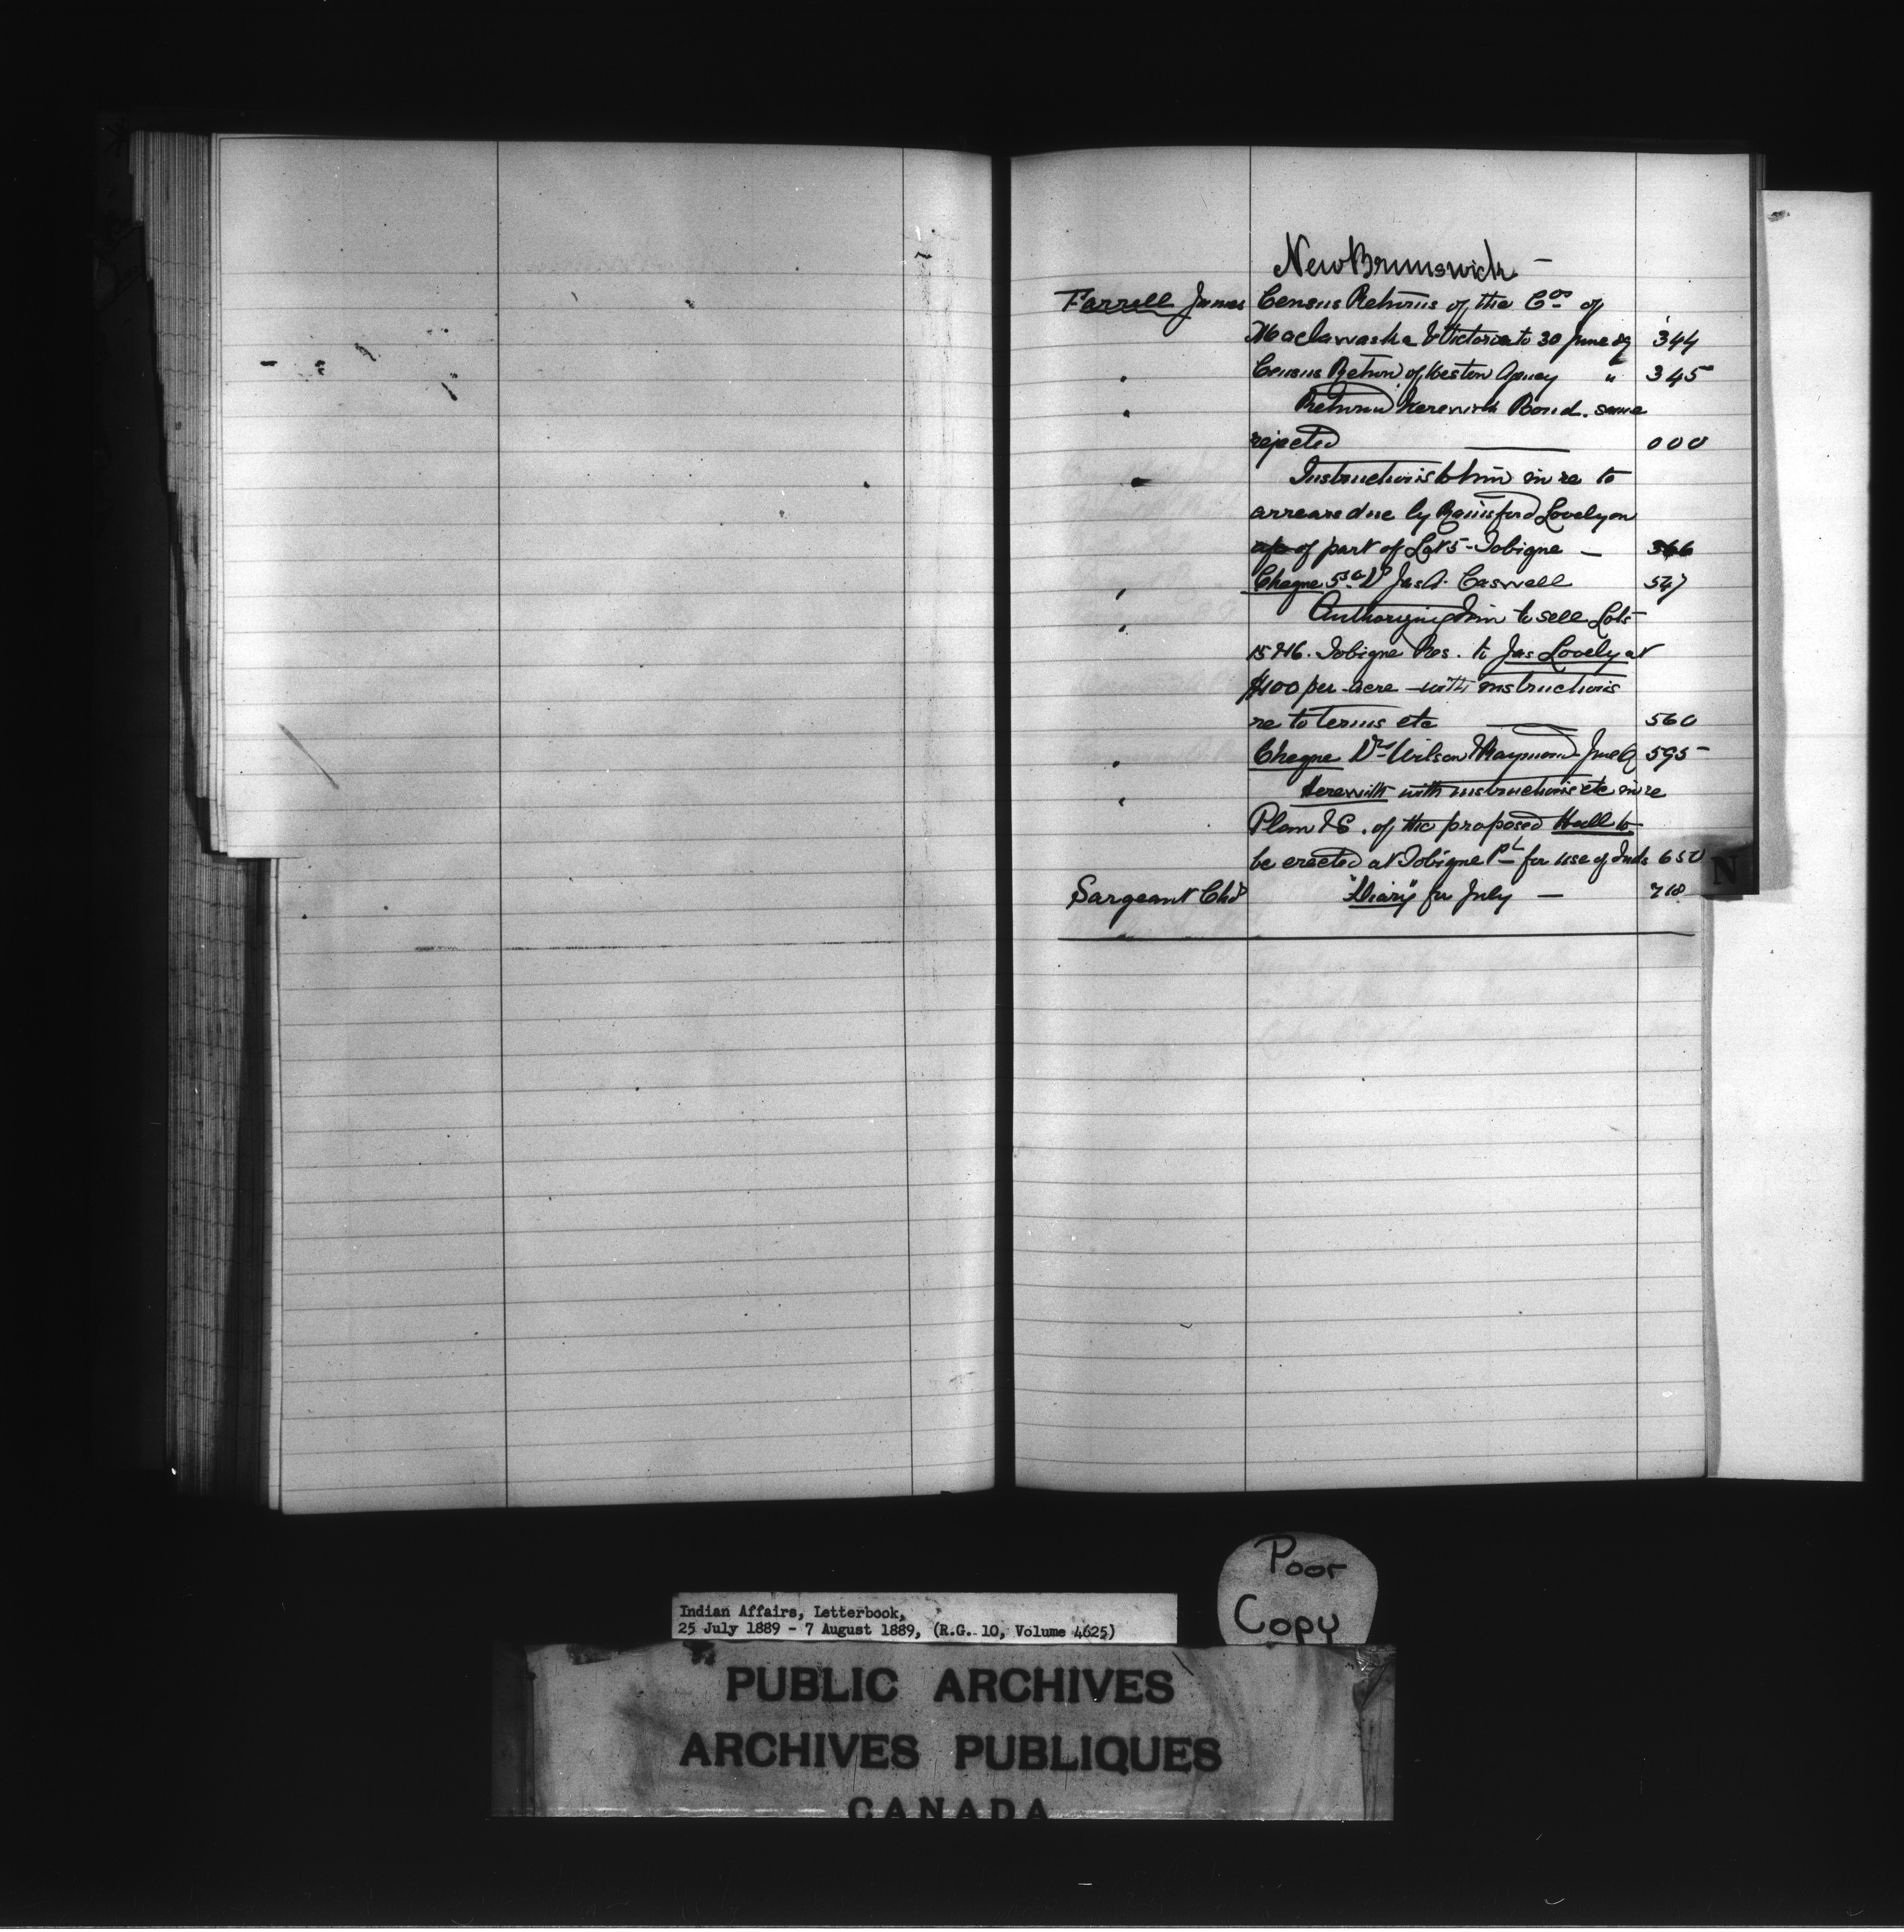 New Brunswick —
Farrell James Census Returns of the Cos of
Madawaska & Victoria to 30 June 89 344
" Census Return of Western Agncy " 345
" Return herewith Bond. same
rejected — 000
" Instructions to him in re to
arrears due by Rainsford Lovely on
a/c of part of Lot 5 - Tobique — 366
" Cheque 5 Jas A. Caswell 547
" Authorizing him to sell Lots
15 & 16. Tobique Res. to Jas Lovely at
$100 per acre — with instructions
re to terms etc — 560
" Cheque Wilson & Raymond June Q 595
" Herewith with instructions etc in re
Plan & S. of the proposed Hall to
be erected at Tobique Pt for use of Inds 650
Sargeant Chs "Diary" for July — 718
N
Poor
Copy
Indian Affairs, Letterbook,
25 July 1889 - 7 August 1889, (R.G. 10, Volume 4625)
PUBLIC ARCHIVES
ARCHIVES PUBLIQUES
CANADA